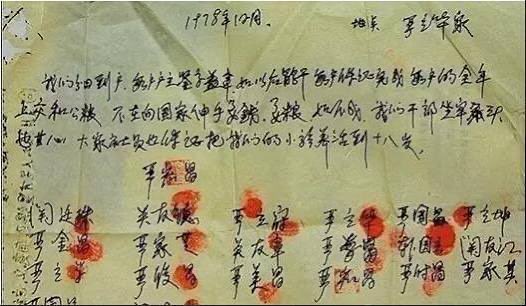 1978年12月. 地点 严立华家
我们分田到户 每户户主签字盖章 如以后能干 每户保证完成每户的全年
上交和公粮 不在向国家伸手要钱要粮 如不成 我们干部坐牢杀头
也甘心 大家社员也保证把我们的小孩养活到十八岁
严宏昌
关廷珠 关友德 严立富 严立华 严国昌 严立坤
严金昌 严家芝 关友章 严学昌 韩国云 关友江
严立学 严俊昌 严美昌 严付昌 严家其